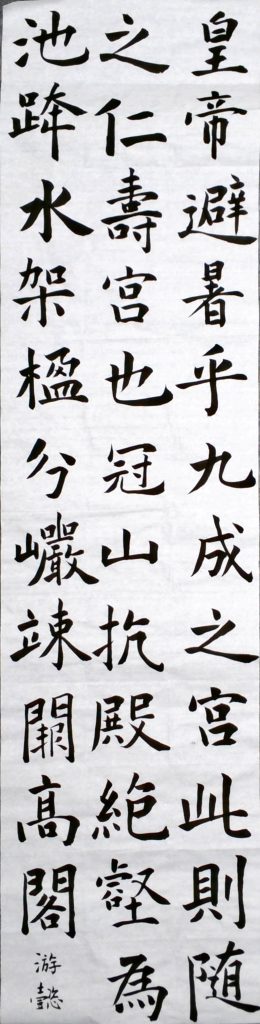 皇帝避暑乎九成之宮此則随
之仁壽宮也冠山抗殿絕壑為
池跨水架楹分巖竦闕高閣
游懿